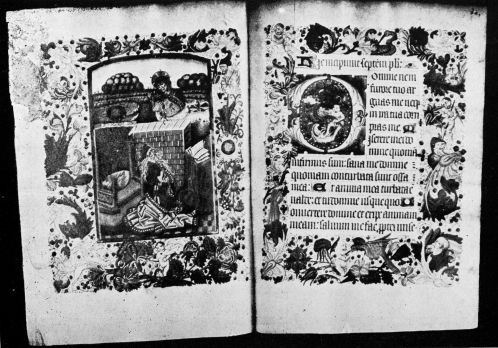 Domine ne in
furore tuo ar
guas me neq
in ira tua cor
pias me
serere mei do
mine quonia
infirmus sum: sana me domine
quoniam conturbata sunt ossa
mea: Et anima mea turbata e
valde: et tu domine usque quo
onvertere domine et eripe animam
meam: salvum me fac propter mise